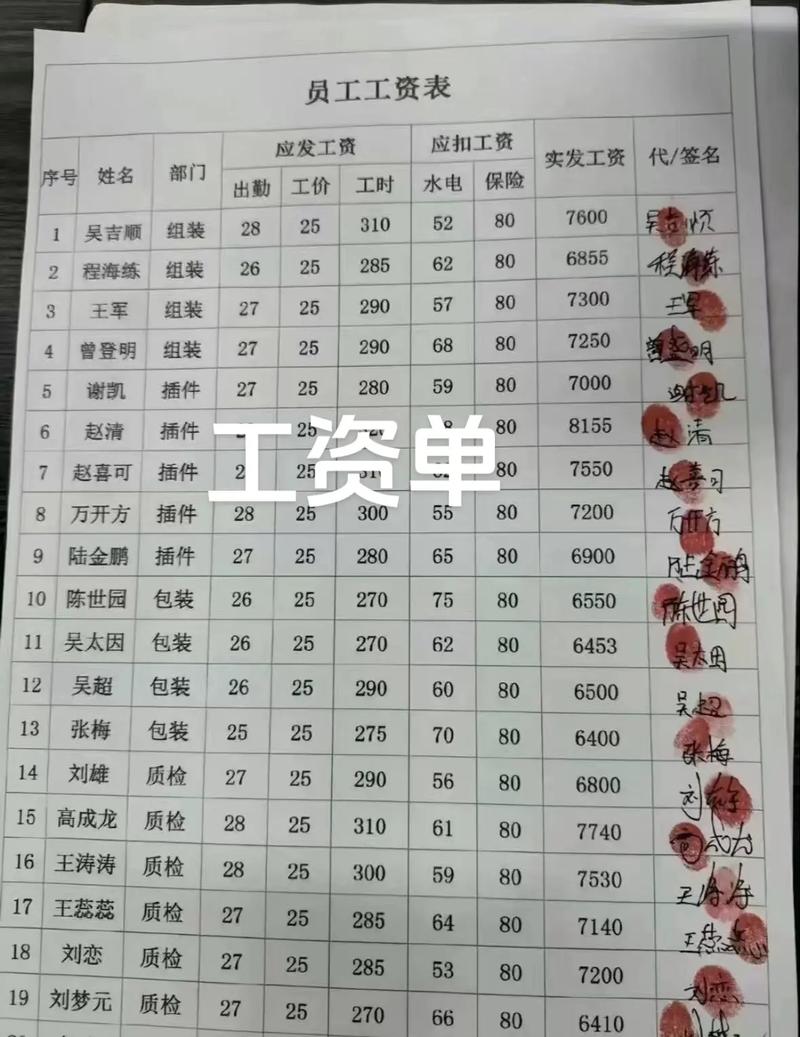 员工工资表
序号 姓名 部门 应发工资 应扣工资 实发工资 代/签名
出勤 工价 工时 水电 保险
1 吴吉顺 组装 28 25 310 52 80 7600 吴吉顺
2 程海练 组装 26 25 285 62 80 6855 程海练
3 王军 组装 27 25 290 57 80 7300 王军
4 曾登明 组装 27 25 290 68 80 7250 曾登明
5 谢凯 插件 27 25 280 59 80 7000 谢凯
6 赵清 插件 25 80 8155 赵清
工资单
7 赵喜可 插件 25 80 7550 赵喜可
8 万开方 插件 28 25 300 55 80 7200 万开方
9 陆金鹏 插件 27 25 280 65 80 6900 陆金鹏
10 陈世园 包装 26 25 270 75 80 6550 陈世园
11 吴太因 包装 26 25 270 62 80 6453 吴太因
12 吴超 包装 26 25 290 60 80 6500 吴超
13 张梅 包装 25 25 275 70 80 6400 张梅
14 刘雄 质检 27 25 290 56 80 6800 刘雄
15 高成龙 质检 28 25 310 61 80 7740 高成龙
16 王涛涛 质检 28 25 300 59 80 7530 王涛涛
17 王蕊蕊 质检 27 25 285 64 80 7140 王蕊蕊
18 刘恋 质检 27 25 285 53 80 7200 刘恋
19 刘梦元 质检 27 25 270 66 80 6410